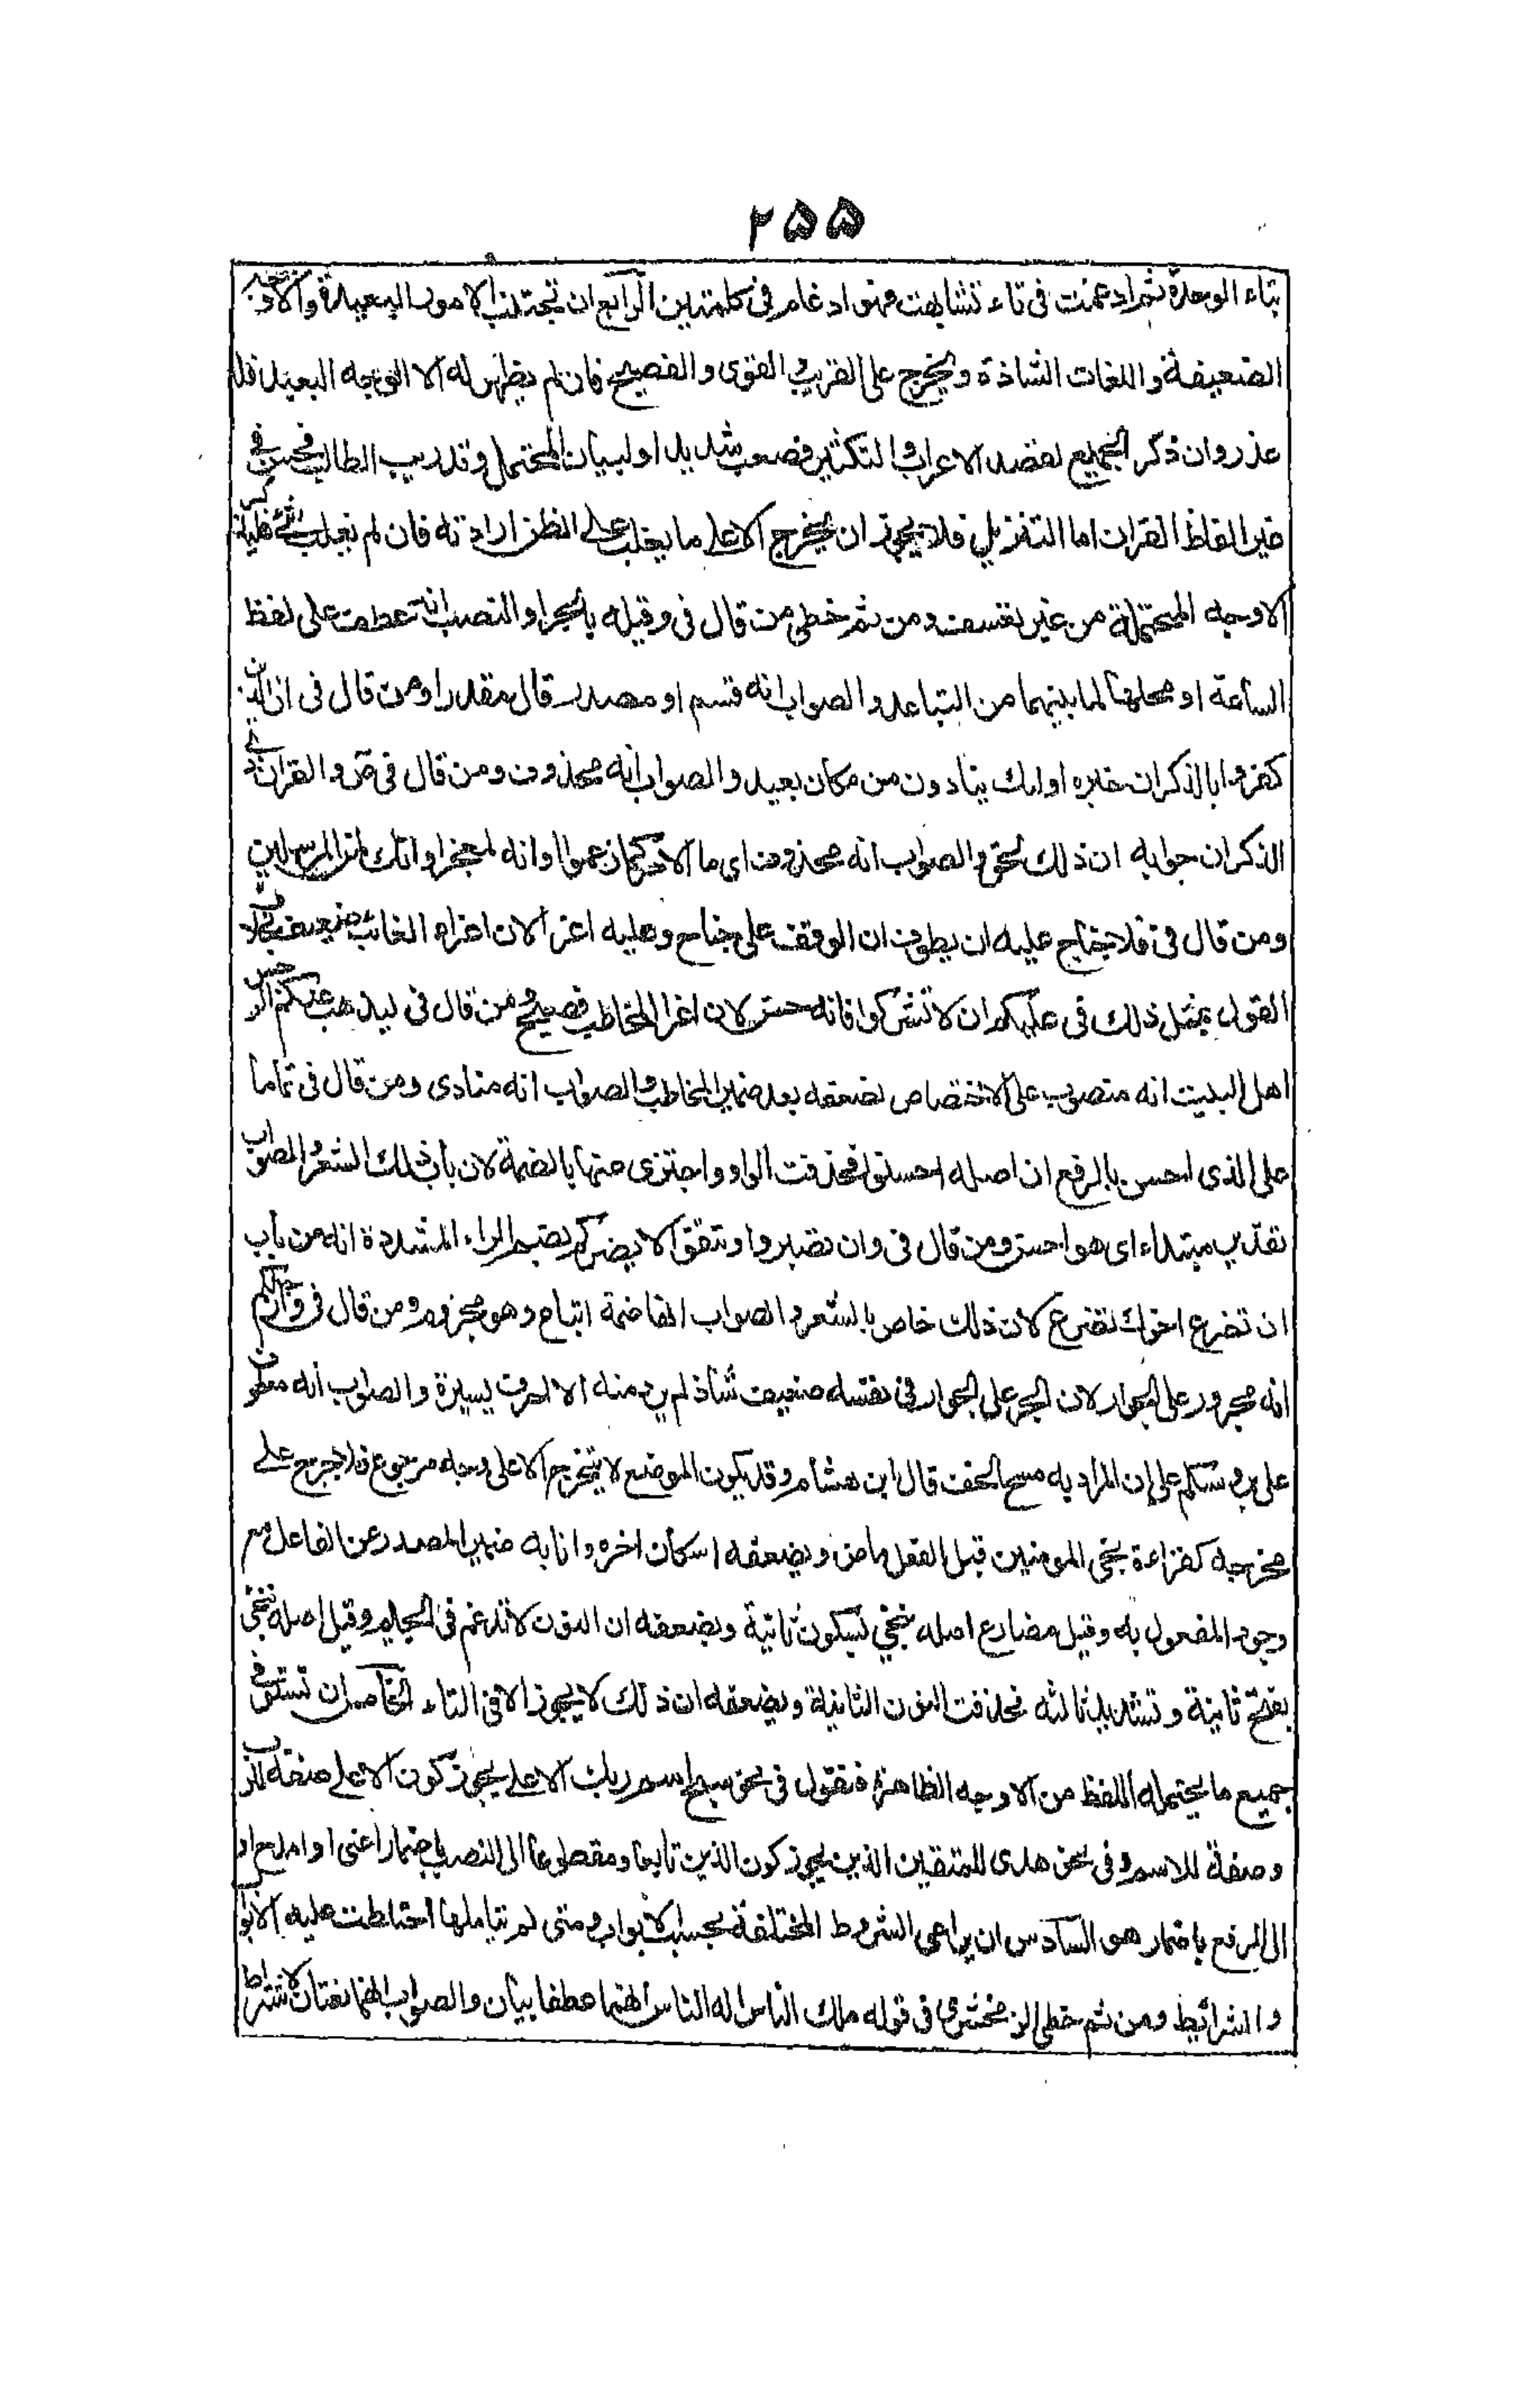 ۲۵۵
بتاء الوحدة ثم ادغمت فى تاء تشابهت فهو ادغام فى كلمتين الرابع ان تجتنب الامور البعيدة والاوجه
الضعيفة واللغات الشاذة ويخرج على القريب والقوى والفصيح فان لم يظهر له الا الوجه البعيد فله
عذر وان ذكر الجميع لقصد الاعراب والتكثير فصعب شديد او لبيان المحتمل وتدريب الطالب فحسن فى
غير الفاظ القران اما التنزيل فلا يجوز ان يخرج الا على ما يغلب على الظن ارادته فان لم يغلب شئ فليذكر
الاوجه المحتملة من غير تعسف ومن ثم خطئ من قال فى وقيله بالجر او النصب انه عطف على لفظ
الساعة او محلها لما بينهما من التباعد والصواب انه قسم او مصدر قال مقدرا ومن قال فى ان الذين
كفروا بالذكر ان خبره اولئك ينادون من مكان بعيد والصواب انه محذوف ومن قال فى ص والقران ذى
الذكر ان جوابه ان ذلك لحق والصواب انه محذوف اى ما الامر كما زعموا او انه لمعجز او انك لمن المرسلين
ومن قال فى فلا جناح عليه ان يطوف ان الوقف على جناح وعليه اغرا لان اغراء الغائب ضعيف بخلاف
القول بمثل ذلك فى عليكم ان لا تشركوا فانه حسن لان اغرا المخاطب فصيح ومن قال فى ليذهب عنكم الرجس
اهل البيت انه منصوب على الاختصاص لضعفه بعد ضمير المخاطب والصواب انه منادى ومن قال فى تماما
على الذى احسن بالرفع ان اصله احسنوا فحذفت الواو واجتزى عنها بالضمة لان باب ذلك الشعر والصواب
تقدير مبتداء اى هو احسن ومن قال فى وان تصبروا وتتقوا لا يضركم بضم الراء المشددة انه من باب
ان تصرع اخوك تصرع لان ذلك خاص بالشعر والصواب انها ضمة اتباع وهو مجزوم ومن قال فى وارجلكم
انه مجرور على الجوار لان الجر على الجوار فى نفسه ضعيف شاذ لم يرد منه الا احرف يسيرة والصواب انه معطوف
على برؤسكم على ان المراد به مسح الخف قال ابن هشام وقد يكون الموضع لا يتخرج الا على وجه مرجوح فلا حرج على
مخرجه كقراءة نجى المومنين قيل الفعل ماض ويضعفه اسكان اخره وانابه ضمير المصدر عن الفاعل مع
وجود المفعول به وقيل مضارع اصله ننجى بسكون ثانية ويضعفه ان النون لا تدغم فى الجيم وقيل اصله ننجى
بفتح ثانية وتشديد ثالثه فحذفت النون الثانية ويضعفه ان ذلك لا يجوز الا فى التاء الخامس ان تستوفى
جميع ما يحتمله اللفظ من الاوجه الظاهرة فتقول فى نحو سبح اسم ربك الاعلى يجوز كون الاعلى صفة للرب
وصفة للاسم وفى نحو هدى للمتقين الذين يجوز كون الذين تابعا ومقطوعا الى النصب باضمار اعنى او امدح او
الى الرفع باضمار هو السادس ان يراعى الشروط المختلفة بحسب الابواب ومتى لم يتاملها اختلطت عليه الابواب
والشرائط ومن ثم خطئ الزمخشرى فى قوله ملك الناس اله الناس انهما عطفا بيان والصواب انهما نعتان لاشتراط